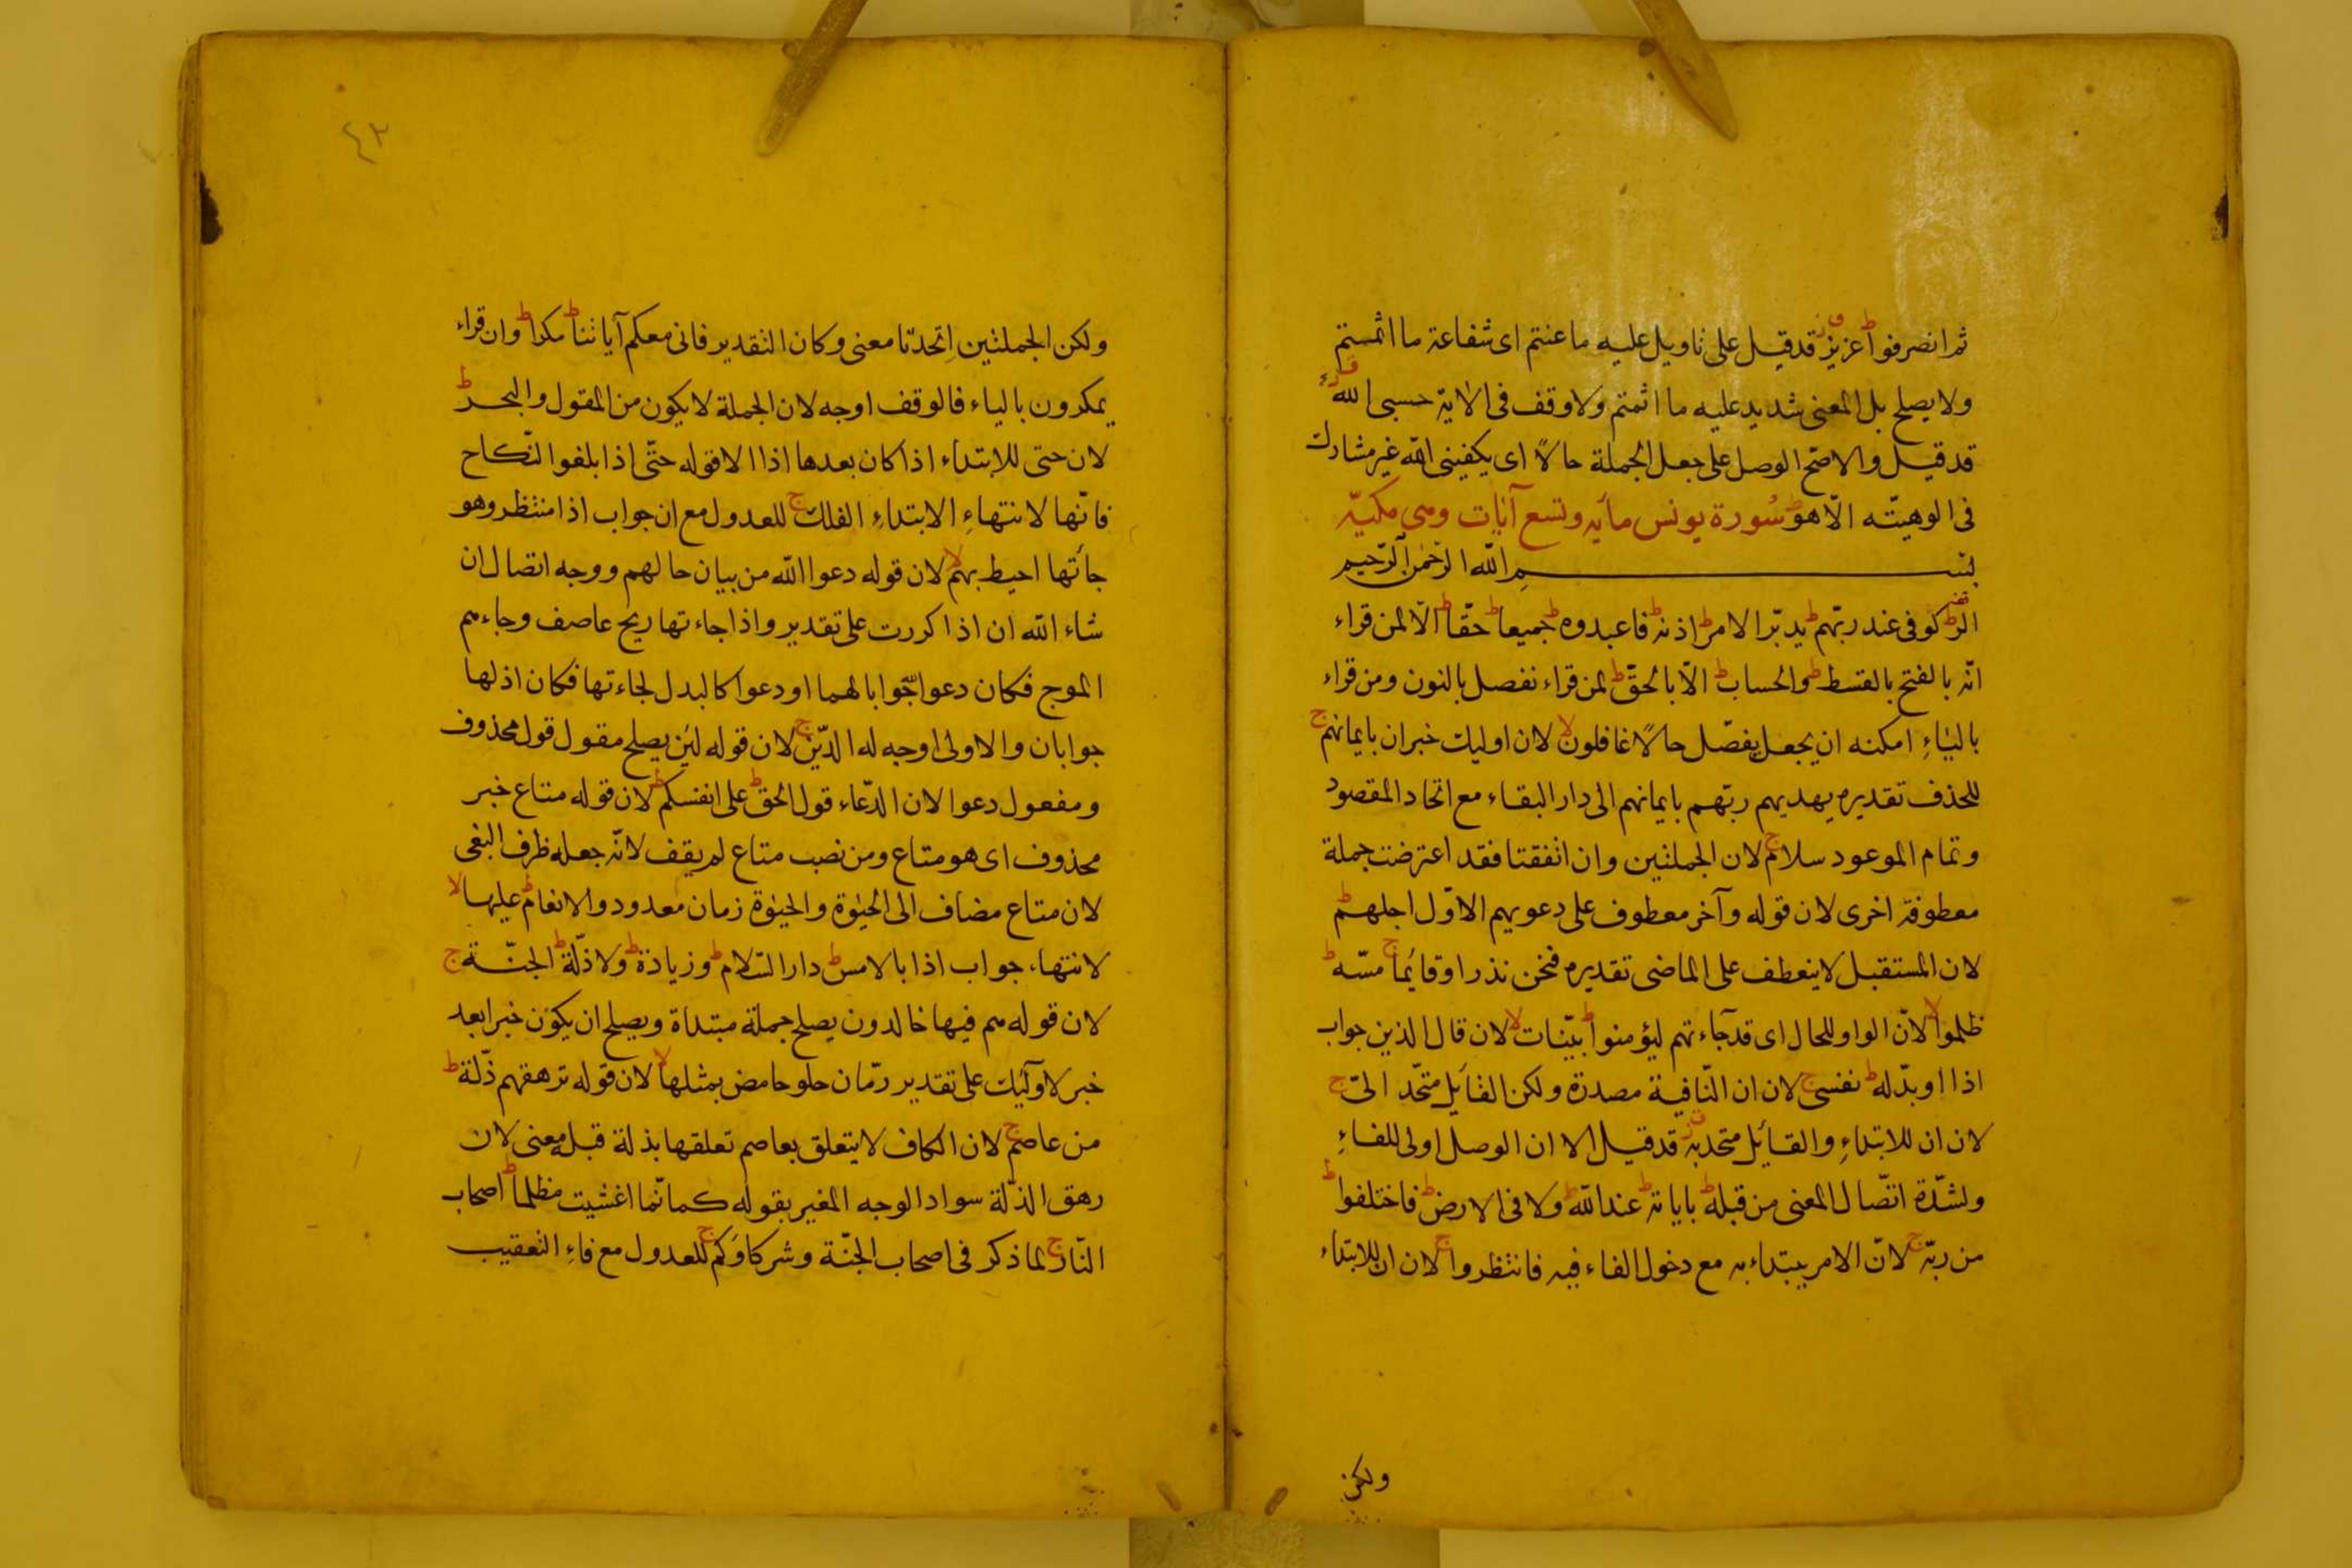 ثم انصرفوا ط عزيز ق قد قيل على تاويل عليه ما عنتم اى شفاعة ما اثمستم
ولا يصلح بل المعنى شديد عليه ما اثمتم ولا وقف فى الاية حسبى الله
قد قيل والاصح الوصل على جعل الجملة حالاً اى يكفينى الله غير مشارك
فى الوهيته الّا هو ط سُورة يونس مأيه وتسع آيات وهى مكيّه
بسم الله الرحمن الرحيم
الر ط كوفى عند ربّهم ط يدبّر الامر ط اذنه ط فاعبدوه ط جميعا ط حقّا ط الّا لمن قراء
انّه بالفتح بالقسط ط والحساب ط الّا بالحقّ ط لمن قراء نفصل بالنون ومن قراء
بالياءِ امكنه ان يجعل يفصّل حالاً غافلون لا لان اوليك خبر ان بايمانهم ج
للحذف تقديره يهديهم ربّهم بايمانهم الى دار البقاء مع اتحاد المقصود
وتمام الموعود سلام ج لان الجملتين وان اتفقتا فقد اعترضت جملة
معطوفة اخرى لان قوله وآخر معطوف على دعويهم الاوّل اجلهم ط
لان المستقبل لا ينعطف على الماضى تقديره فنحن نذر او قايما ج مسّه ط
ظلموا لا لانّ الواو للحال اى قد جآءتهم ليؤمنوا ط بيّنات لا لان قال الذين جواب
اذا او بدّله ط نفسى ج لان ان النّافية مصدرة ولكن القايل متحّد الىّ ج
لان ان للابتداءِ والقايل متحد به ق قد قيل الا ان الوصل اولى للفاءِ
ولشدّة اتّصال المعنى من قبله ط باياته ط عند الله ط ولا فى الارض ط فاختلفوا ط
من ربّه ج لانّ الامر يبتداء به مع دخول الفاء فيه فانتظروا ج لان ان للابتداء
ولكن
٤٣
ولكن الجملتين اِتحدتا معنى وكان التقدير فانى معكم آياتنا ط مكرا ط وان قراء
يمكرون بالياء فالوقف اوجه لان الجملة لا يكون من المقول والبحر ط
لان حتى للابتداء اذا كان بعدها اذا الا قوله حتّى اذا بلغوا النّكاح
فانّها لانتهاءِ الابتداءِ الفلك ج للعدول مع ان جواب اذا منتظر وهو
جأتها احيط بهم لا لان قوله دعوا الله من بيان حالهم ووجه اتصال ان
شاء الله ان اذا كررت على تقدير واذا جاءتها ريح عاصف وجاءهم
الموج فكان دعوا جوابا لهما او دعوا كالبدل لجاءتها فكان اذ لها
جوابان والاولى اوجه له الدّين ج لان قوله لئن يصلح مقول قول محذوف
ومفعول دعوا لان الدّعاء قول الحق ط على انفسكم ط لان قوله متاع خبر
محذوف اى هو متاع ومن نصب متاع لم يقف لانّه جعله ظرف البغى
لان متاع مضاف الى الحيٰوة والحيٰوة زمان معدود والانعام ط عليها لا
لانتهاء جواب اذا بالامس ط دار السّلام ط وزيادة ط ولا ذلّة ط الجنّة ج
لان قوله هم فيها خالدون يصلح جملة مبتداة ويصلح ان يكون خبرا بعد
خبر لاولئك على تقدير رمّان حلو حامض بمثلها لا لان قوله ترهقهم ذلّة ط
من عاصم ج لان الكاف لا يتعلق بعاصم تعلقها بذلة قبله معنى لان
رهق الذلّة سواد الوجه المغير بقوله كمانّما اغشيت مظلما ط اصحاب
النّار ج لما ذكر فى اصحاب الجنّة وشركاؤكم ج للعدول مع فاءِ التعقيب